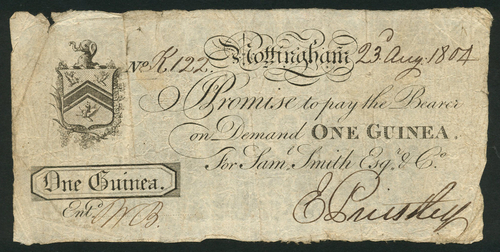 No. K122. Nottingham 23d. Aug. 1804
I Promise to pay the Bearer
on Demand ONE GUINEA.
For Saml. Smith Esqr. & Co.
One Guinea.
Entd.